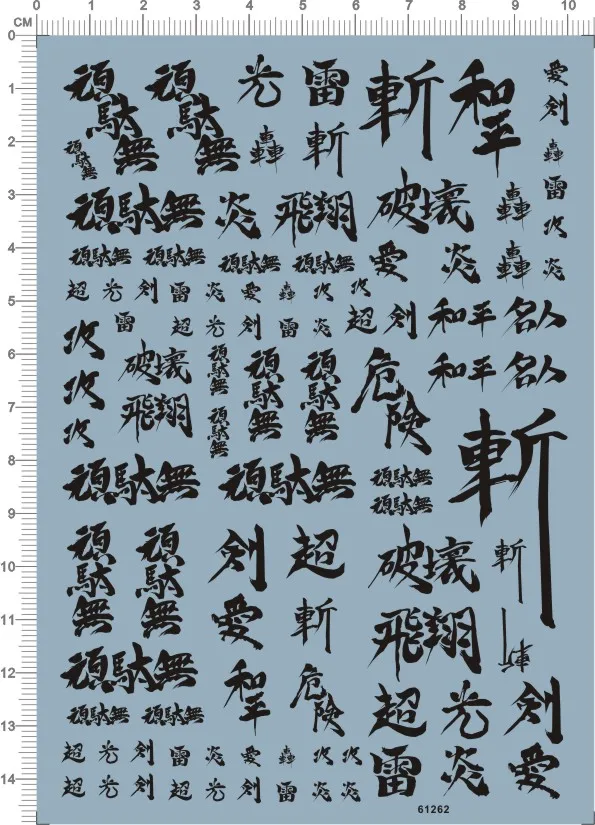 0 1 2 3 4 5 6 7 8 9 10
CM
0
1
2
3
4
5
6
7
8
9
10
11
12
13
14
頑駄無
頑駄無
光
雷
斬
和平
愛
剣
頑駄無
轟
斬
轟
頑駄無
炎
飛翔
破壊
轟
雷
攻
頑駄無 頑駄無 頑駄無 頑駄無
愛
炎
轟
炎
超 光 剣 雷 炎 愛 轟 攻 攻
雷 超 光 剣 雷 炎 超 剣 和平 名人
攻
攻
攻
破壊
飛翔
頑駄無
頑駄無
頑駄無
頑駄無
危険
和平 名人
斬
頑駄無 頑駄無
頑駄無
頑駄無
頑駄無
頑駄無
剣 超
破壊
斬
愛 斬
飛翔
頑駄無
和平
危険
超 光 剣
頑駄無 頑駄無
超 光 剣 雷 炎 愛 轟 攻 攻
雷 炎 愛
超 光 剣 超 光 剣 雷 炎 炎
61262